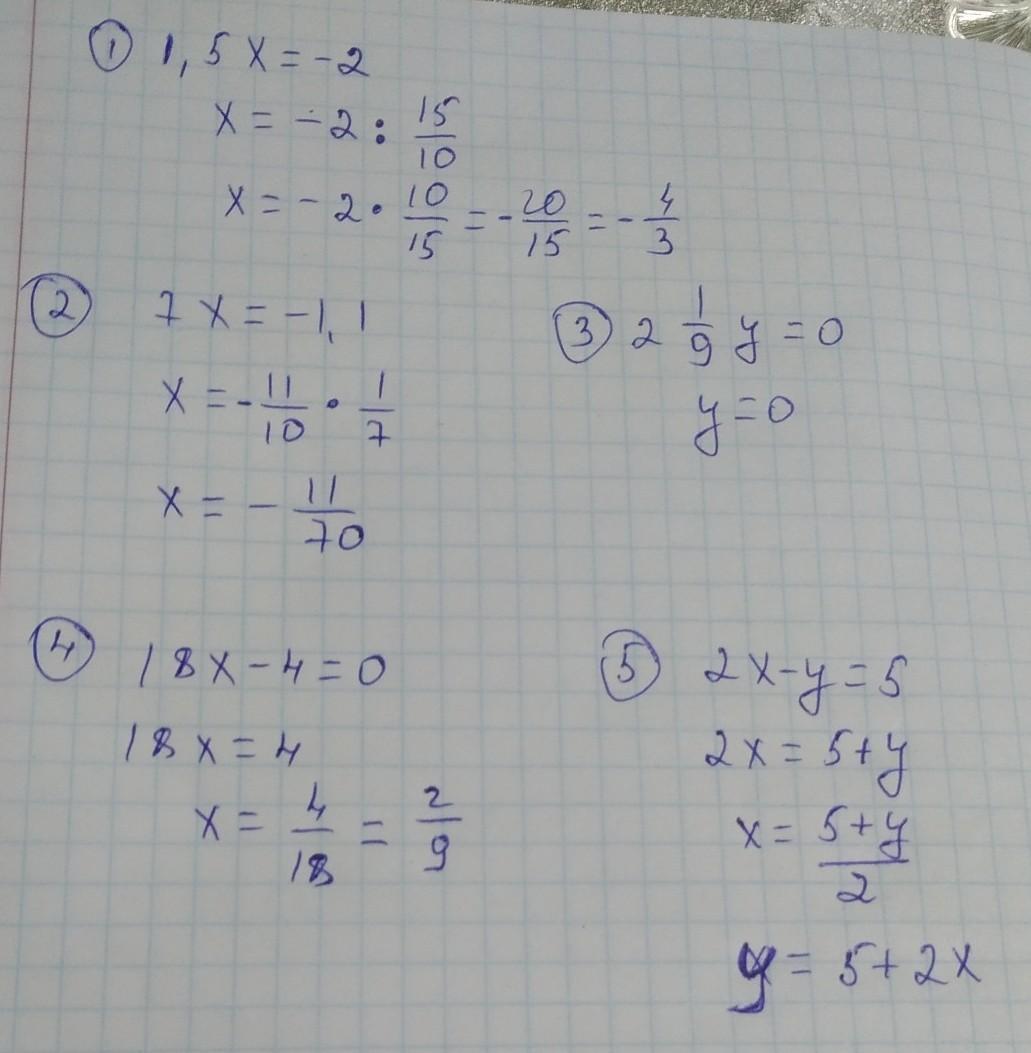 ① 1,5x = -2
x = -2 : 15/10
x = -2 · 10/15 = -20/15 = -4/3
② 7x = -1,1
x = -11/10 · 1/7
x = -11/70
③ 2 1/9 y = 0
y = 0
④ 18x - 4 = 0
18x = 4
x = 4/18 = 2/9
⑤ 2x - y = 5
2x = 5 + y
x = (5+y)/2
y = 5 + 2x